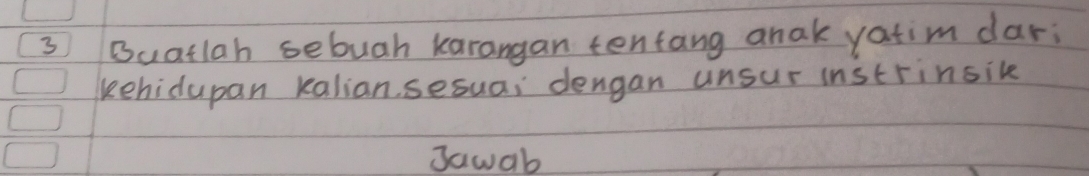 3 Buatlah sebuah karangan tentang anak yatim dari
kehidupan kalian.sesuai dengan unsur instrinsik
Jawab